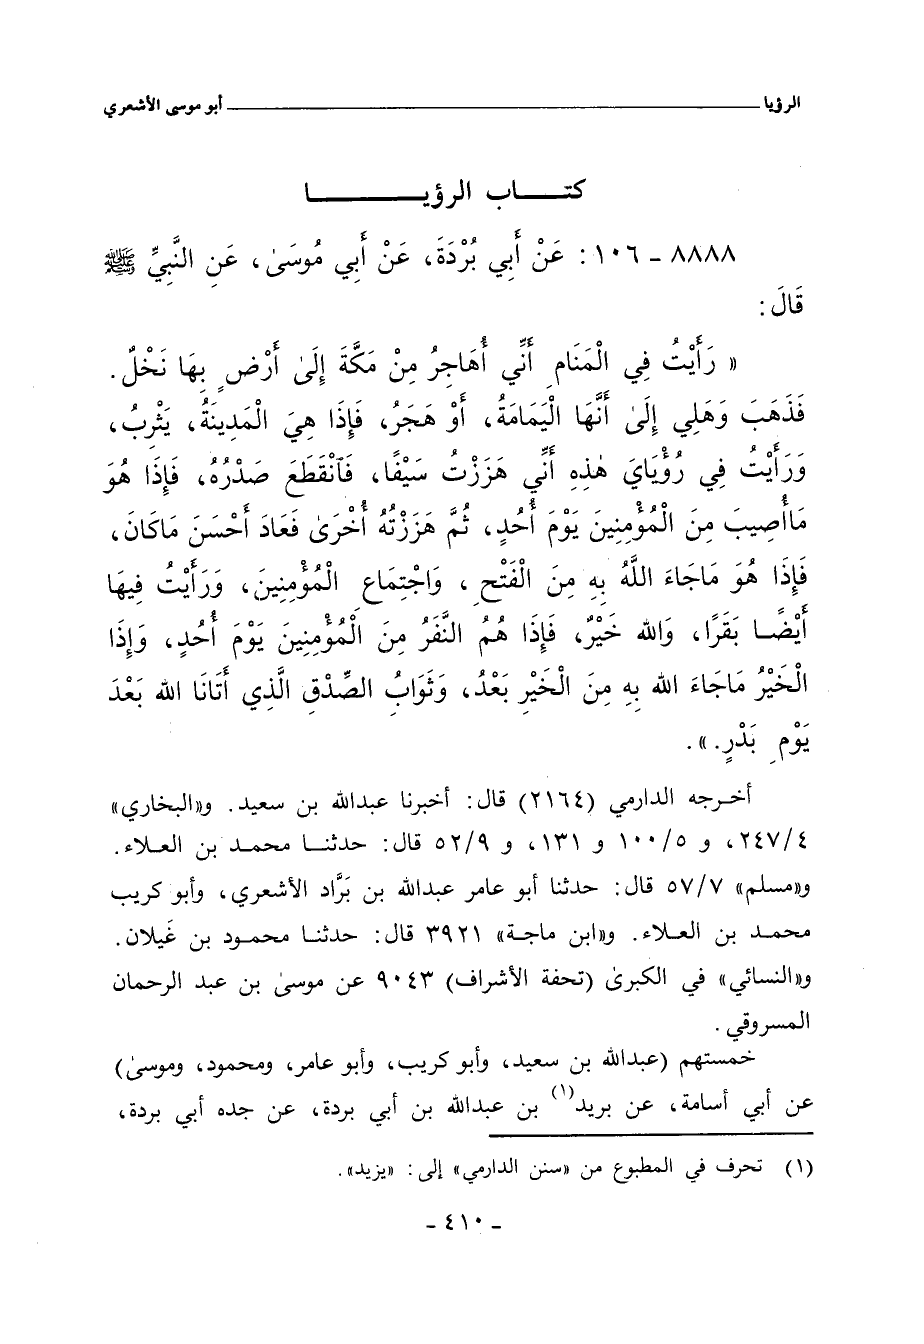 الرؤيا ــــــــــــــ أبو موسى الأشعري
كتـــــاب الرؤيـــــــــــا
٨٨٨٨ ـ ١٠٦ : عَنْ أَبِي بُرْدَةَ، عَنْ أَبِي مُوسَىٰ، عَنِ النَّبِيِّ ﷺ
قَالَ:
« رَأَيْتُ فِي الْمَنَامِ أَنِّي أُهَاجِرُ مِنْ مَكَّةَ إِلَىٰ أَرْضٍ بِهَا نَخْلٌ.
فَذَهَبَ وَهَلِي إِلَىٰ أَنَّهَا الْيَمَامَةُ، أَوْ هَجَرُ، فَإِذَا هِيَ الْمَدِينَةُ، يَثْرِبُ،
وَرَأَيْتُ فِي رُؤْيَايَ هٰذِهِ أَنِّي هَزَزْتُ سَيْفًا، فَٱنْقَطَعَ صَدْرُهُ، فَإِذَا هُوَ
مَاأُصِيبَ مِنَ الْمُؤْمِنِينَ يَوْمَ أُحُدٍ، ثُمَّ هَزَزْتُهُ أُخْرَىٰ فَعَادَ أَحْسَنَ مَاكَانَ،
فَإِذَا هُوَ مَاجَاءَ اللَّهُ بِهِ مِنَ الْفَتْحِ ، وَاجْتِمَاعِ الْمُؤْمِنِينَ، وَرَأَيْتُ فِيهَا
أَيْضًا بَقَرًا، وَالله خَيْرٌ، فَإِذَا هُمُ النَّفَرُ مِنَ الْمُؤْمِنِينَ يَوْمَ أُحُدٍ، وَإِذَا
الْخَيْرُ مَاجَاءَ الله بِهِ مِنَ الْخَيْرِ بَعْدُ، وَثَوَابُ الصِّدْقِ الَّذِي أَتَانَا الله بَعْدَ
يَوْمِ بَدْرٍ.».
أخـرجه الدارمي (٢١٦٤) قال: أخبرنا عبدالله بن سعيد. و«البخاري»
٢٤٧/٤، و ١٠٠/٥ و ١٣١، و ٥٢/٩ قال: حدثنـا محمـد بن العـلاء.
و«مسلم» ٥٧/٧ قال: حدثنا أبو عامر عبدالله بن بَرَّاد الأشعري، وأبو كريب
محمـد بن العـلاء. و«ابن ماجـة» ٣٩٢١ قال: حدثنـا محمـود بن غَيلان.
و«النسائي» في الكبرىٰ (تحفة الأشراف) ٩٠٤٣ عن موسىٰ بن عبد الرحمان
المسروقي.
خمستهم (عبدالله بن سعيد، وأبو كريب، وأبو عامر، ومحمود، وموسىٰ)
عن أبي أسامة، عن بريد(١) بن عبدالله بن أبي بردة، عن جده أبي بردة،
(١) تحرف في المطبوع من «سنن الدارمي» إلى: «يزيد».
ـ ٤١٠ ـ